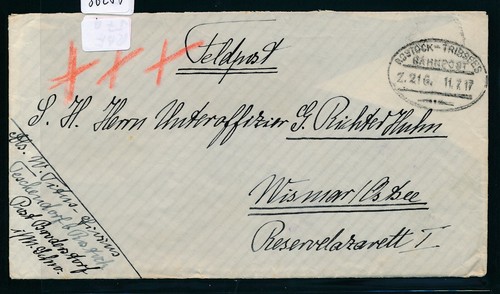 Feldpost
ROSTOCK-TRIBSEES
BAHNPOST
Z.216. 11.7.17
S. H. Herrn Unteroffizier G. Richter Huhn
Wismar/Ostsee
Reservelazarett I
Abs. W. Titus-
Teschendorf b/
Post Broderstorf
i/M. Schw.